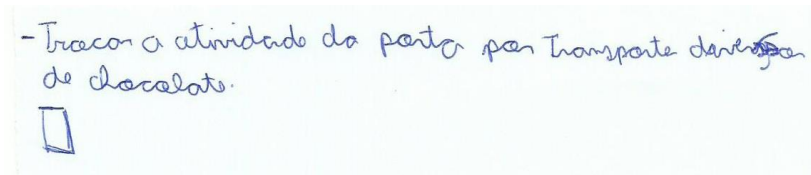 - Trocar a atividade da porta por Transporte diversos
de chocolate.